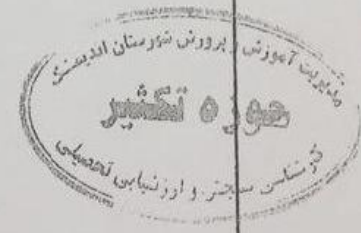 مدیریت آموزش و پرورش شهرستان اندیمشک
حوزه تکثیر
کارشناسی سنجش و ارزشیابی تحصیلی